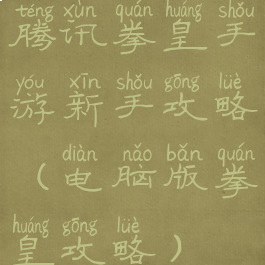 téng xùn quán huáng shǒu
腾讯拳皇手
yóu xīn shǒu gōng lüè
游新手攻略
diàn nǎo bǎn quán
（电脑版拳
huáng gōng lüè
皇攻略）